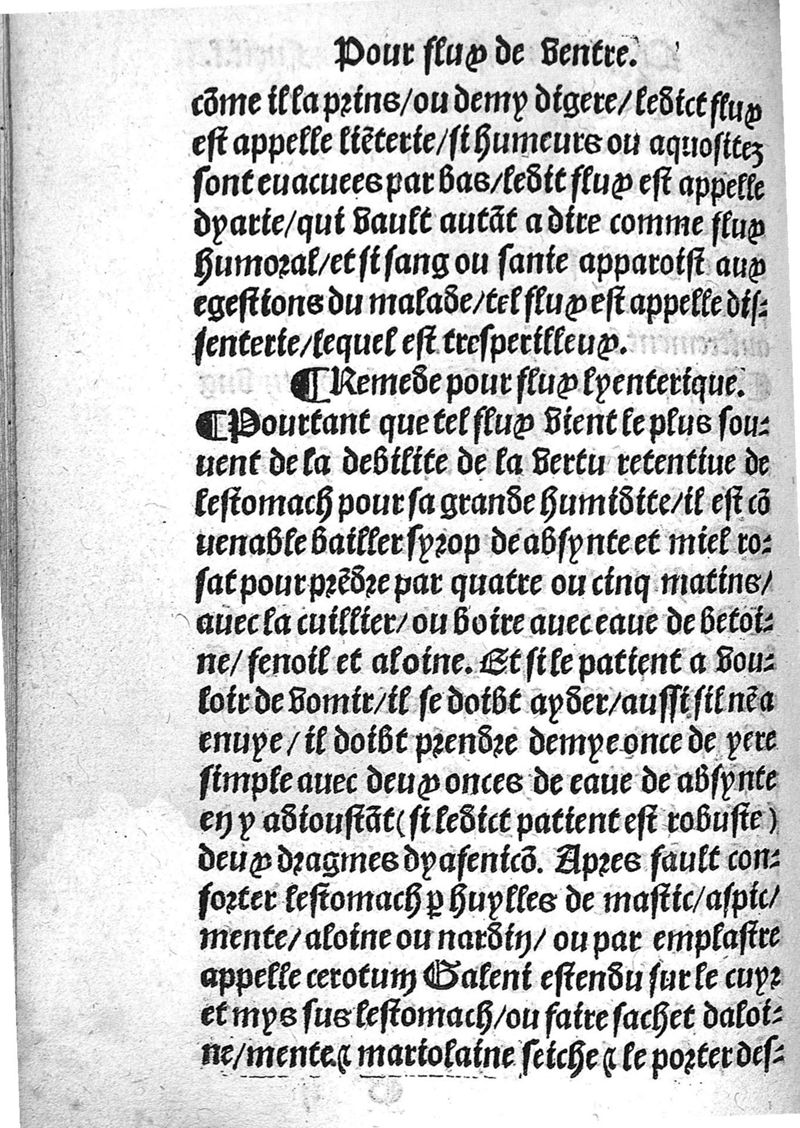 Pour flux de ventre.
cõme il la prins/ou demy digere/ledict flux
est appelle liẽterie/si humeurs ou aquositez
sont euacuees par bas/ledit flux est appelle
dyarie/qui vault autãt a dire comme flux
humoral/et si sang ou sanie apparoist aux
egestions du malade/tel flux est appelle dis-
senterie/lequel est tresperilleux.
¶ Remede pour flux lyenterique.
¶ Pourtant que tel flux vient le plus sou-
uent de la debilite de la vertu retentiue de
lestomach pour sa grande humidite/il est cõ
uenable bailler syrop de absynte et miel ro-
sat pour prẽdre par quatre ou cinq matins/
auec la cuillier/ou boire auec eaue de betoi-
ne/fenoil et aloine. Et si le patient a vou-
loir de vomir/il se doibt ayder/aussi sil nẽ a
enuye/il doibt prendre demye once de yere
simple auec deux onces de eaue de absynte
en y adioustãt (si ledict patient est robuste)
deux dragmes dyafenicõ. Apres fault con-
forter lestomach ꝑ huylles de mastic/aspic/
mente/aloine ou nardin/ou par emplastre
appelle cerotum Galeni estendu sur le cuyr
et mys sus lestomach/ou faire sachet daloi-
ne/mente ⁊ mariolaine seiche ⁊ le porter des-